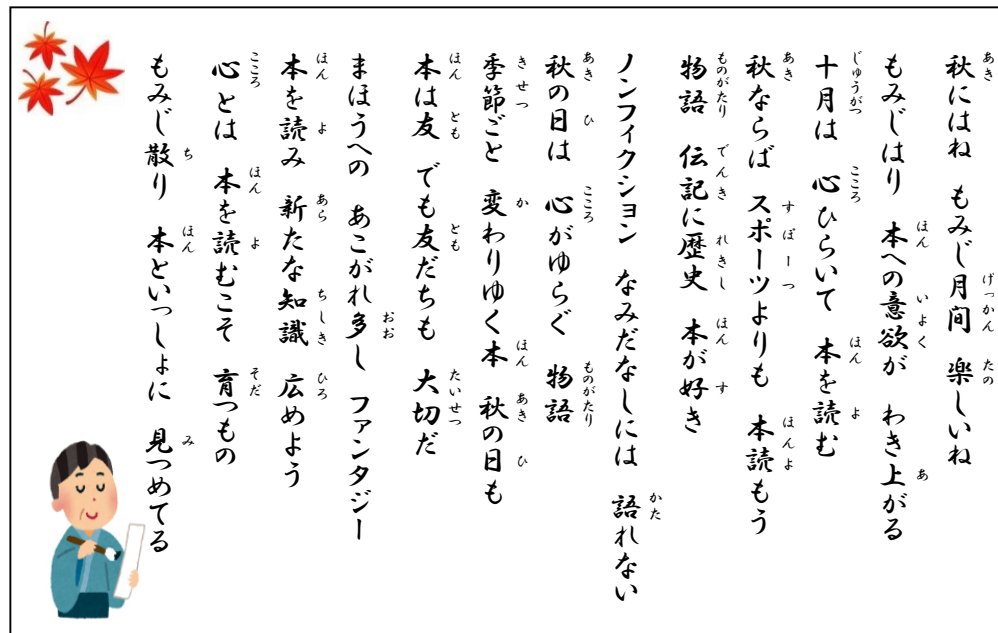 秋にはね もみじ月間 楽しいね
もみじはり 本への意欲が わき上がる
十月は 心ひらいて 本を読む
秋ならば スポーツよりも 本読もう
物語 伝記に歴史 本が好き
ノンフィクション なみだなしには 語れない
秋の日は 心がゆらぐ 物語
季節ごと 変わりゆく本 秋の日も
本は友 でも友だちも 大切だ
まほうへの あこがれ多し ファンタジー
本を読み 新たな知識 広めよう
心とは 本を読むこそ 育つもの
もみじ散り 本といっしょに 見つめてる